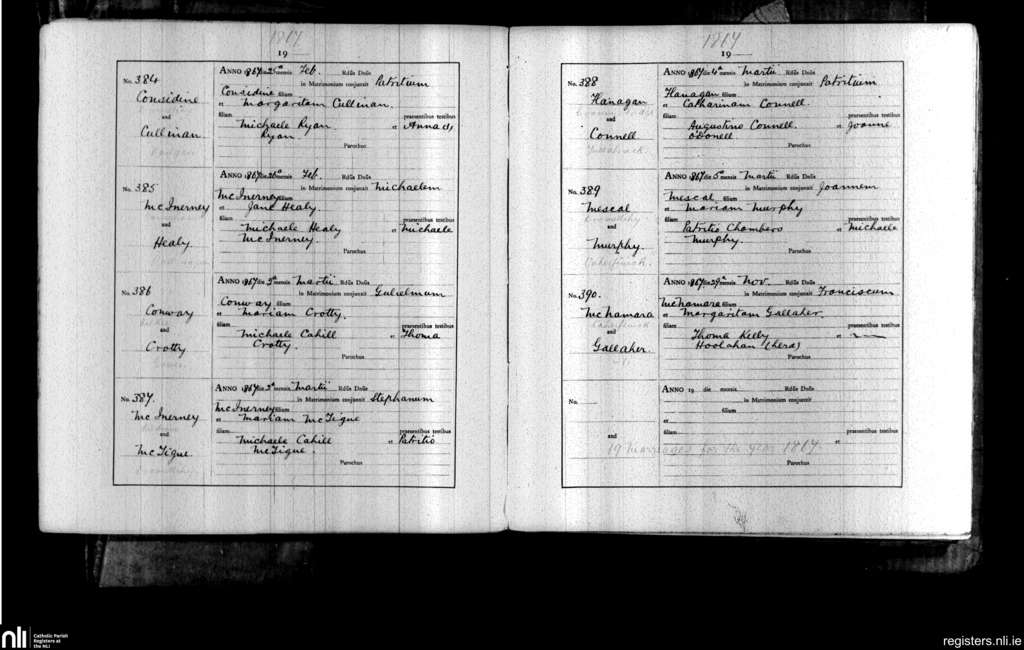 1867
19
No. 384
Considine
and
Cullinan
ANNO 1867 die 25a mensis Feb. Rdus Dnus
in Matrimonium conjunxit Patritium
Considine filium
et Margaritam Cullinan.
filiam praesentibus testibus
Michaele Ryan et Anna
Ryan.
Parochus
No. 385
McInerney
and
Healy
ANNO 1867 die 26a mensis Feb. Rdus Dnus
in Matrimonium conjunxit Michaelem
McInerney filium
et Jane Healy.
filiam praesentibus testibus
Michaele Healy et Michaele
McInerney.
Parochus
No. 386
Conway
and
Crotty
ANNO 1867 die mensis Martii Rdus Dnus
in Matrimonium conjunxit Gulielmum
Conway filium
et Mariam Crotty.
filiam praesentibus testibus
Michaele Cahill et Thoma
Crotty.
Parochus
No. 387.
McInerney
and
McTigue
ANNO 1867 die mensis Martii Rdus Dnus
in Matrimonium conjunxit Stephanum
McInerney filium
et Mariam McTigue
filiam praesentibus testibus
Michaele Cahill et Patritio
McTigue.
Parochus
1867
19
No. 388
Flanagan
and
Connell
ANNO 1867 die 4a mensis Martii Rdus Dnus
in Matrimonium conjunxit Patritium
Flanagan filium
et Catharinam Connell
filiam praesentibus testibus
Augustino Connell. et Joanne
O'Donell.
Parochus
No. 389
Mescal
and
Murphy.
Caherfinick.
ANNO 1867 die 5a mensis Martii Rdus Dnus
in Matrimonium conjunxit Joannem
Mescal filium
et Mariam Murphy
filiam praesentibus testibus
Patritio Chambers et Michaele
Murphy.
Parochus
No. 390.
McNamara
Caherfinick
and
Gallaher.
ANNO 1867 die 29a mensis Nov. Rdus Dnus
in Matrimonium conjunxit Franciscum
McNamara filium
et Margaritam Gallaher.
filiam praesentibus testibus
Thoma Kelly et
Hoolahan (hera)
Parochus
No.
and
ANNO 19 die mensis Rdus Dnus
in Matrimonium conjunxit
filium
et
filiam praesentibus testibus
et
19 marriages for the year 1867.
Parochus
nli Catholic Parish
Registers at
the NLI
registers.nli.ie